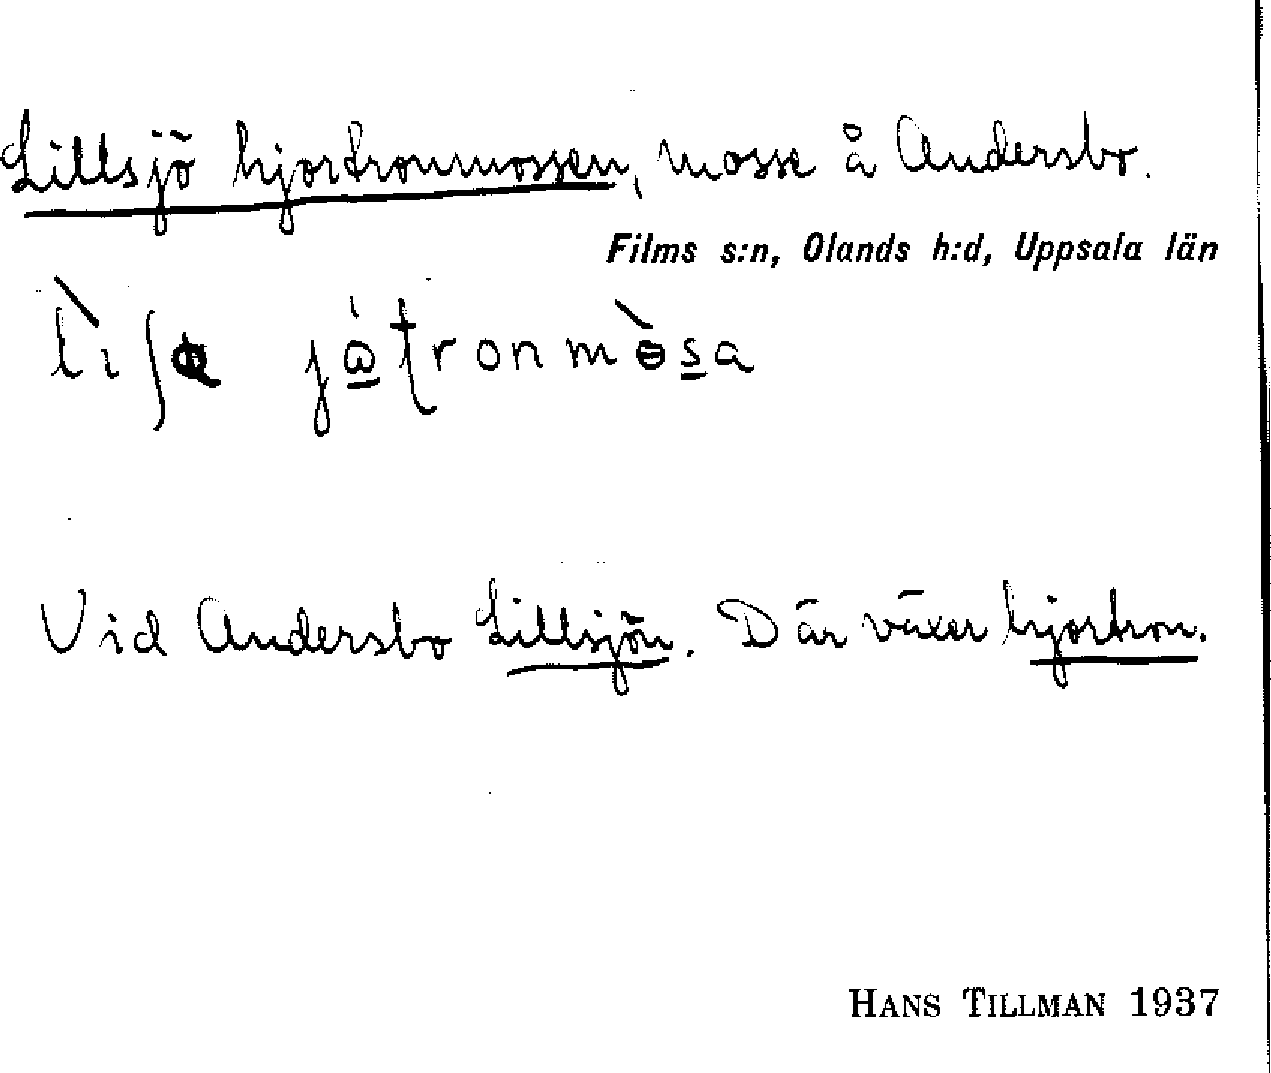 Lillsjö hjortronmossen, mosse å Andersbo.
Films s:n, Olands h:d, Uppsala län
Vid Andersbo Lillsjön. Där växer hjortron.
HANS TILLMAN 1937